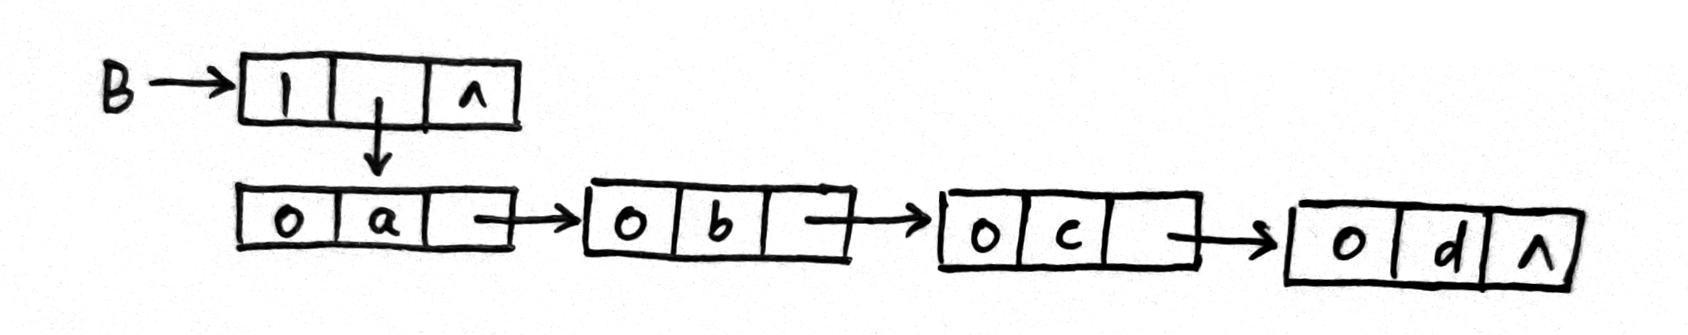 B 1 ∧
0 a 0 b 0 c 0 d ∧